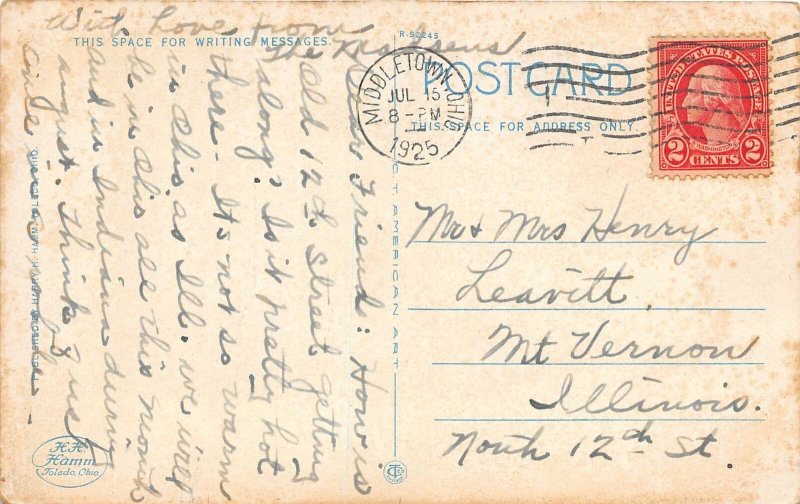 With Love from
The
THIS SPACE FOR WRITING MESSAGES.
R-92245
POSTCARD
THIS SPACE FOR ADDRESS ONLY.
MIDDLETOWN, OHIO
JUL 15
8 - PM
1925
UNITED STATES POSTAGE
WASHINGTON
2 CENTS 2
Dear Friend: How is
old 12th street getting
along? Is it pretty hot
there - It's not so warm
in this as Ill. we will
be in this all this month
and in Indiana during
august. Think of us
once in a while -
Mr & Mrs Henry
Leavitt
Mt Vernon
Illinois.
North 12th St.
C.T. AMERICAN ART
PUBLISHED BY HARRY H. HAMM, TOLEDO, OHIO.
H.H.
Hamm
Toledo, Ohio.